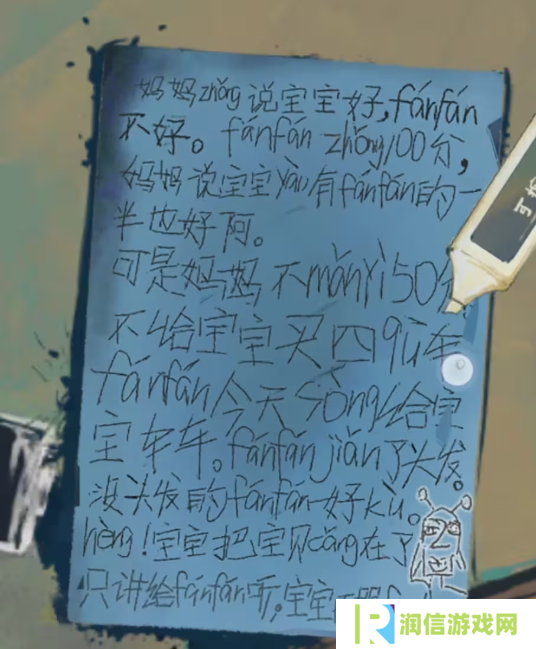 妈妈zhǒng说宝宝好,fánfán
不好。fánfán zhǒng100分,
妈妈说宝宝yàu有fánfán的一
半也好阿。
可是妈妈不mǎnyì50分
不给宝宝买四qū车
fánfán今天sòng给宝
宝车车。fánfán jiǎn了头发。
没头发的fánfán好kù。
hèng!宝宝把宝贝cáng在了
只讲给fánfán听,宝宝
润信游戏网